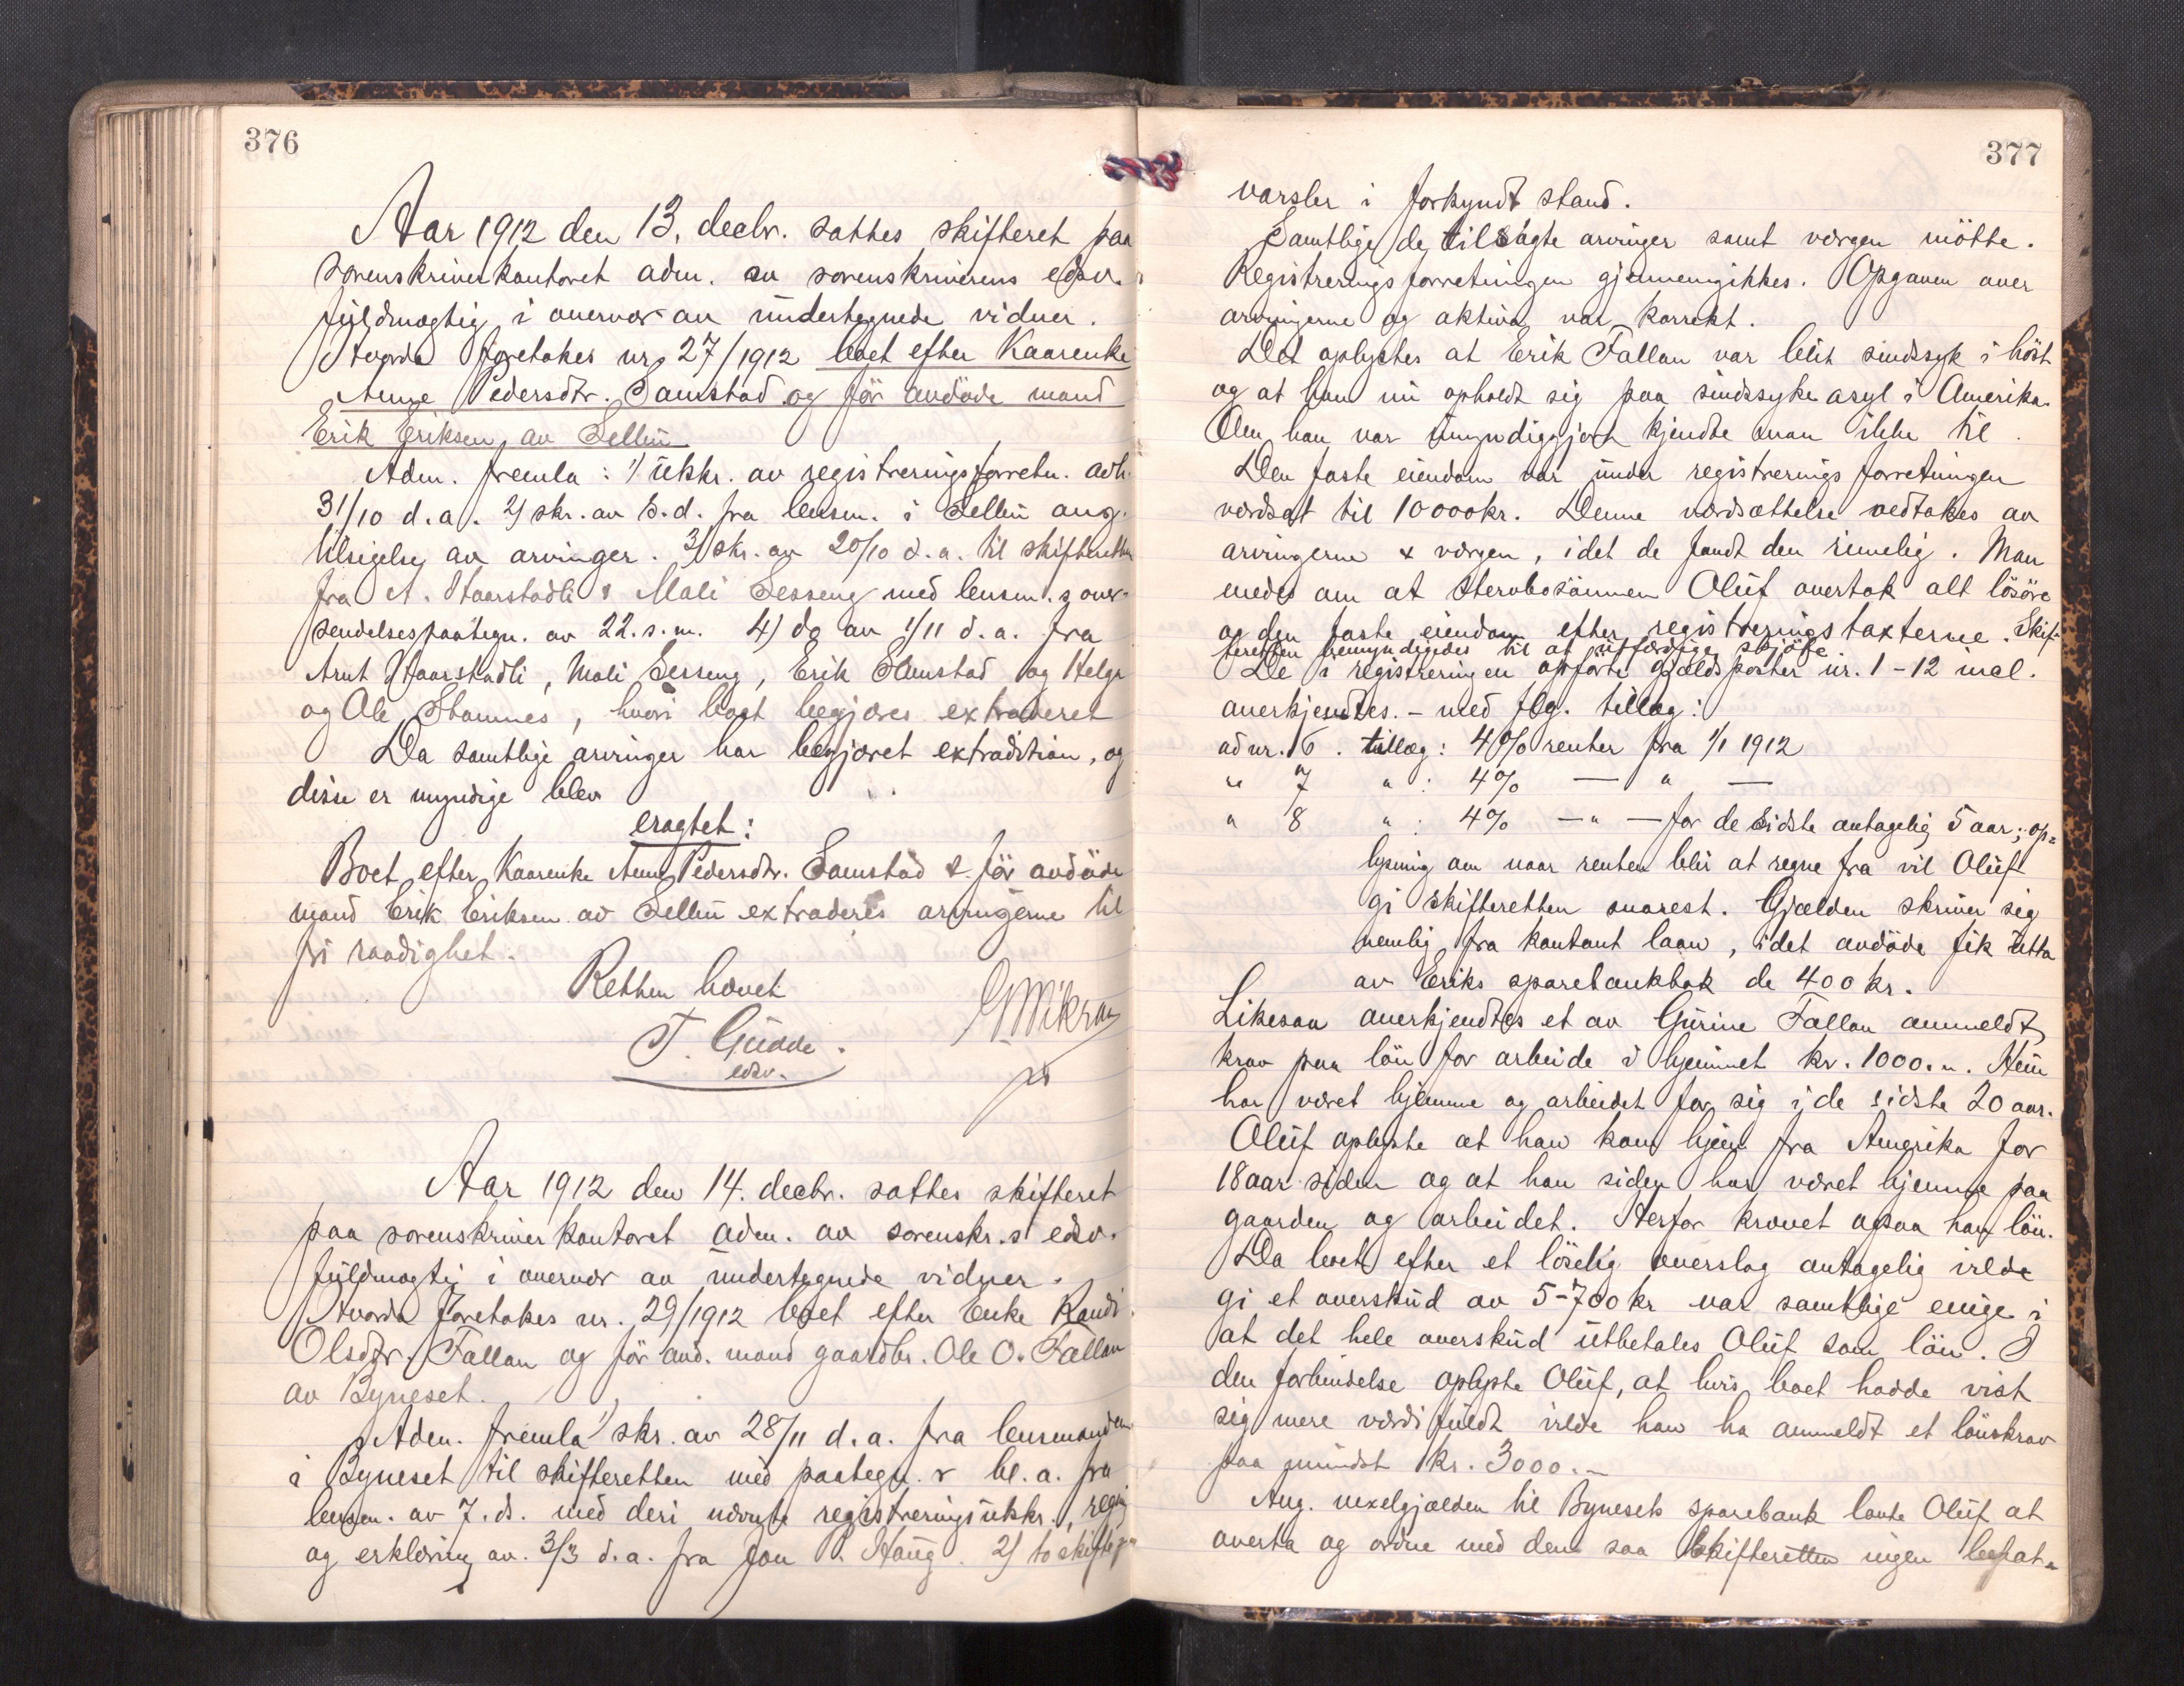 376
Aar 1912 den 13. decbr. sattes skifteret paa
sorenskriverkontoret adm. av sorenskriverens edsv.
fuldmægtig i overvær av undertegnede vidner.
Hvorda foretokes nr. 27/1912 boet efter Kaarenke
Anne Pedersdtr. Samstad og før avdøde mand
Erik Eriksen av Selbu
Adm. fremla: 1/ utskr. av registreringsforretn. avh.
31/10 d.a. 2/ skr. av s.d. fra lensm. i Selbu ang.
tilsigelse av arvinger. 3/ skr. av 20/10 d.a. til skifteretten
fra A. Haarstadli & Mali Sesseng med lensm.s over-
sendelsespaategn. av 22.s.m. 4) do av 1/11 d.a. fra
Arnt Haarstadli, Mali Sesseng, Erik Samstad og Helge
og Ole Stamnes, hvori boet begjæres extraderet
Da samtlige arvinger har begjæret extradition, og
disse er myndige blev
eragtet:
Boet efter Kaarenke Anne Pedersdtr. Samstad & før avdøde
mand Erik Eriksen av Selbu extraderes arvingerne til
fri raadighet.
Retten hævet
T. Gudde.
edsv.
Aar 1912 den 14. decbr. sattes skifteret
paa sorenskriverkontoret adm. av sorenskr.s edsv.
fuldmægtig i overvær av undertegnede vidner.
Hvorda foretokes nr. 29/1912 boet efter Enke Randi
Olsdtr. Fallan og før avd. mand gaardbr. Ole O. Fallan
av Byneset.
Adm. fremla 1/ skr. av 28/11 d.a. fra lensmanden
i Byneset til skifteretten med paategn. bl.a. fra
lensm. av 7. ds. med deri nævnte registreringsutskr.,
og erklæring av 3/3 d.a. fra Jon P. Haug. 2/ to
377
varsler i forkyndt stand.
Samtlige de tilsagte arvinger samt værgen møtte.
Registreringsforretningen gjennemgikkes. Opgaven over
arvingerne og aktiva var korrekt.
Det oplystes at Erik Fallan var blit sindssyk i høst
og at han nu opholdt sig paa sindssykeasyl i Amerika.
Om han var umyndiggjort kjendte man ikke til.
Den faste eiendom var under registreringsforretningen
værdsat til 10000kr. Denne værdsættelse vedtokes av
arvingerne & værgen, idet de fandt den rimelig. Man
enedes om at stervbosønnen Oluf overtok alt løsøre
og den faste eiendom efter registreringstaxterne. Skif-
teretten bemyndigedes til at utfærdige skjøte
De i registreringen opførte gjældsposter nr. 1-12 incl.
anerkjendtes. - med flg. tillæg:
ad nr. 6. tillæg: 4% renter fra 1/1 1912
" 7 " : 4% — " —
" 8 " : 4% — " — for de sidste antagelig 5 aar; op=
lysning om naar renten blir at regne fra vil Oluf
gi skifteretten snarest. Gjælden skriver sig
nemlig fra kontant laan, idet avdøde fik utta
av Eriks sparebankbok de 400 kr.
Likesaa anerkjendtes et av Gurine Fallan anmeldt
krav paa løn for arbeide i hjemmet kr. 1000.-. Hun
har været hjemme og arbeidet for sig i de sidste 20 aar.
Oluf oplyste at han kom hjem fra Amerika for
18 aar siden og at han siden har været hjemme paa
gaarden og arbeidet. Herfor krævet ogsaa han løn.
Da boet efter et løselig overslag antagelig vilde
gi et overskud av 5-700 kr var samtlige enige i
at det hele overskud utbetales Oluf som løn. I
den forbindelse oplyste Oluf, at hvis boet hadde vist
sig mere værdifuldt vilde han ha anmeldt et lønskrav
paa mindst kr. 3000.-
Ang. vexelgjælden til Bynesets sparebank lovte Oluf at
overta og ordne med den saa skifteretten ingen befat-